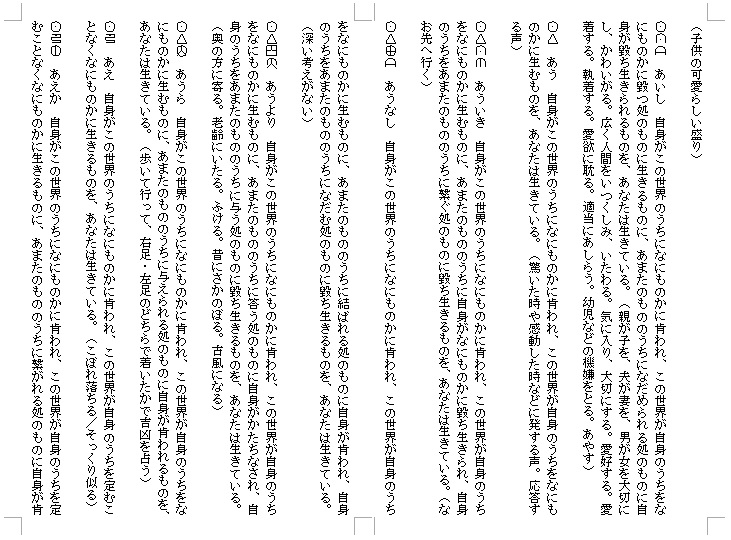 （子供の可愛らしい盛り）
あいし　自身がこの世界のうちになにものかに肯われ、この世界が自身のうちをな
にものかに毀つ処のものに生きるものに、あまたのもののうちになだめられる処のものに自
身が毀ち生きられるものを、あなたは生きている。（親が子を、夫が妻を、男が女を大切に
し、かわいがる。広く人間をいつくしみ、いたわる。気に入り、大切にする。愛好する。愛
着する。執着する。愛欲に耽る。適当にあしらう。幼児などの機嫌をとる。あやす）
あう　自身がこの世界のうちになにものかに肯われ、この世界が自身のうちをなにも
のかに生むものを、あなたは生きている。（驚いた時や感動した時などに発する声。応答す
る声）
あういき　自身がこの世界のうちになにものかに肯われ、この世界が自身のうち
をなにものかに生むものに、あまたのもののうちに自身がなにものかに毀ち生きられ、自身
のうちをあまたのもののうちに繋ぐ処のものに毀ち生きるものを、あなたは生きている。（な
お先へ行く）
あうなし　自身がこの世界のうちになにものかに肯われ、この世界が自身のうち
をなにものかに生むものに、あまたのもののうちに結ばれる処のものに自身が肯われ、自身
のうちをあまたのもののうちになだむ処のものに毀ち生きるものを、あなたは生きている。
（深い考えがない）
あうより　自身がこの世界のうちになにものかに肯われ、この世界が自身のうち
をなにものかに生むものに、あまたのもののうちに答う処のものに自身がかたちなされ、自
身のうちをあまたのもののうちに与う処のものに毀ち生きるものを、あなたは生きている。
（奥の方に寄る。老齢にいたる。ふける。昔にさかのぼる。古風になる）
あうら　自身がこの世界のうちになにものかに肯われ、この世界が自身のうちをな
にものかに生むものに、あまたのもののうちに与えられる処のものに自身が肯われるものを、
あなたは生きている。（歩いて行って、右足・左足のどちらで着いたかで吉凶を占う）
あえ　自身がこの世界のうちになにものかに肯われ、この世界が自身のうちを定むこ
となくなにものかに生きるものを、あなたは生きている。（こぼれ落ちる／そっくり似る）
あえか　自身がこの世界のうちになにものかに肯われ、この世界が自身のうちを定
むことなくなにものかに生きるものに、あまたのもののうちに繋がれる処のものに自身が肯